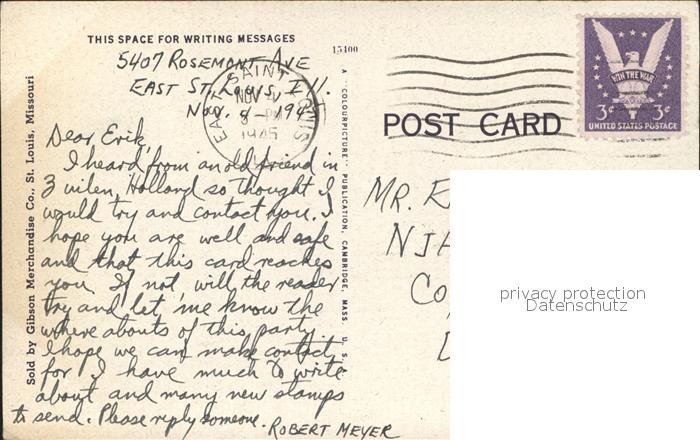 THIS SPACE FOR WRITING MESSAGES
15400
5407 ROSEMONT AVE
EAST ST. LOUIS, Ill.
Nov. 8 - 1945
Dear Erik,
I heard from an old friend in
Zuilen, Holland so thought I
would try and contact you. I
hope you are well and safe
and that this card reaches
you. If not, will the reader
try and let me know the
where abouts of this party.
I hope we can make contact,
for I have much to write
about and many new stamps
to send. Please reply someone.
ROBERT MEYER
Sold by Gibson Merchandise Co., St. Louis, Missouri
A "COLOURPICTURE" PUBLICATION, CAMBRIDGE, MASS. U. S.
EAST SAINT LOUIS
NOV
PM
1945
POST CARD
WIN THE WAR
3¢ 3¢
UNITED STATES POSTAGE
MR. E
NJA
Co
privacy protection
Datenschutz